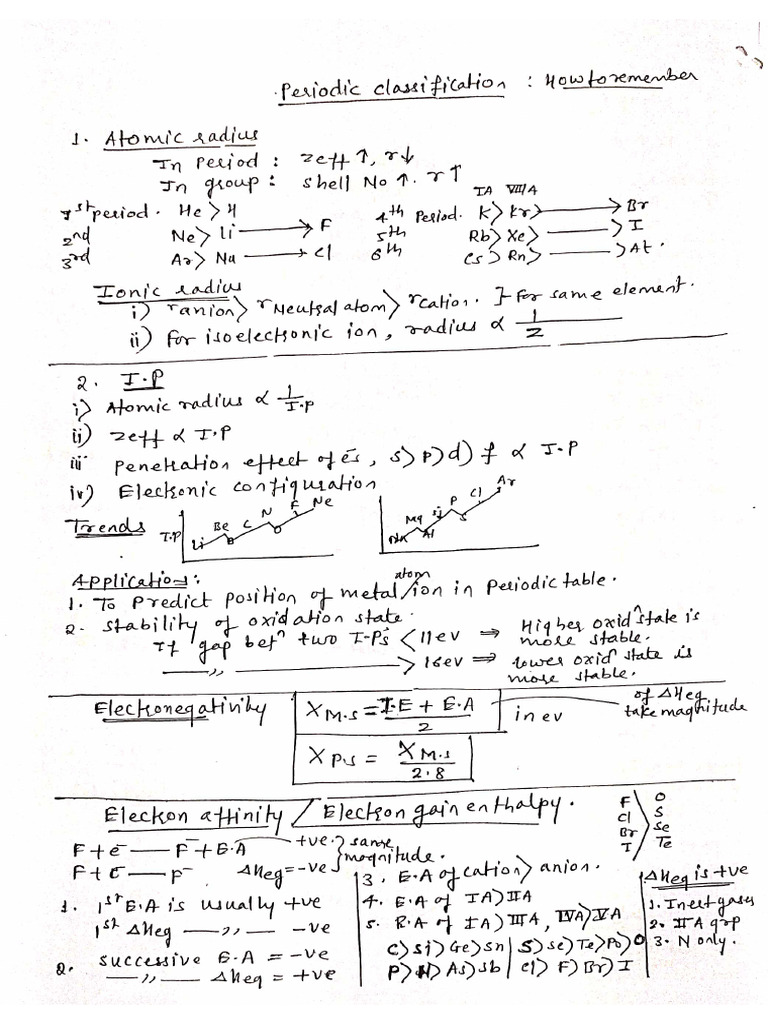 Periodic classification : How to remember
1. Atomic radius
In Period : Zeff ↑, r↓
In group : shell No ↑. r↑
IA VIIIA
1st period. He > H
2nd Ne > Li ⟶ F
3rd Ar > Na ⟶ Cl
4th Period. K > Kr > ⟶ Br
5th Rb > Xe > ⟶ I
6th Cs > Rn > ⟶ At.
Ionic radius
i) ranion > rNeutral atom > rcation. }- for same element.
ii) for isoelectronic ion, radius ∝ 1/Z
2. I.P
i) Atomic radius ∝ 1/I.P
ii) Zeff ∝ I.P
iii Penetration effect of es, s > p > d > f ∝ I.P
iv) Electronic configuration
Trends I.P Li Be B C N O F Ne
Na Mg Al Si P S Cl Ar
Application :
1. To Predict position of metal atom/ion in Periodic table.
2. stability of oxidation state.
If gap betn two I.Ps < 11 ev ⇒ Higher oxidn state is more stable.
—〃— > 16ev ⇒ lower oxidn state is more stable.
Electronegativity
XM.S = I.E + E.A / 2 in ev
of ΔHeg take magnitude
XPS = XM.S / 2.8
Electron affinity / Electron gain enthalpy.
F + e̅ — F̅ + E.A +ve } same magnitude.
F + e̅ — F̅ ΔHeg = -ve
F O
Cl S
Br Se
I Te
1. 1st E.A is usually +ve
1st ΔHeg —〃— -ve
2. successive E.A = -ve
—〃— ΔHeg = +ve
3. E.A of cation > anion.
4. E.A of IA > IIA
5. E.A of IA > IIIA, IVA > VA
C > Si > Ge > Sn | S > Se > Te > Po > O
P > N > As > Sb | Cl > F > Br > I
ΔHeg is +ve
1. Inert gases
2. IIA grp
3. N only.